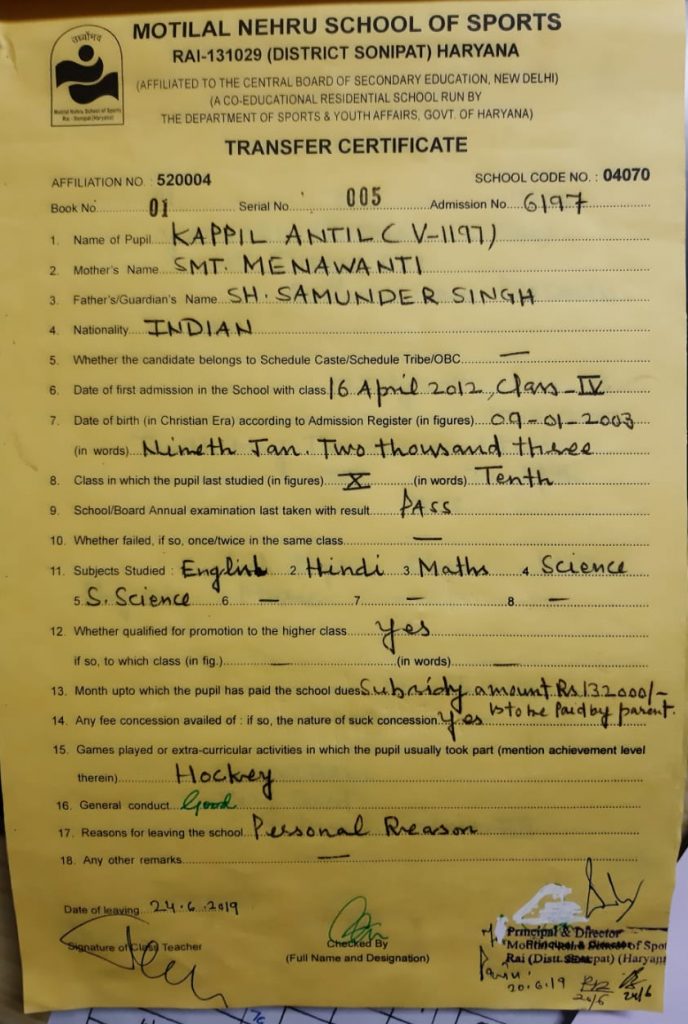 उत्तिष्ठोभव
Motilal Nehru School of Sports
Rai - Sonipat (Haryana)
MOTILAL NEHRU SCHOOL OF SPORTS
RAI-131029 (DISTRICT SONIPAT) HARYANA
(AFFILIATED TO THE CENTRAL BOARD OF SECONDARY EDUCATION, NEW DELHI)
(A CO-EDUCATIONAL RESIDENTIAL SCHOOL RUN BY
THE DEPARTMENT OF SPORTS & YOUTH AFFAIRS, GOVT. OF HARYANA)
TRANSFER CERTIFICATE
AFFILIATION NO : 520004 SCHOOL CODE NO. : 04070
Book No. 01 Serial No. 005 Admission No. 6197
1. Name of Pupil KAPPIL ANTIL (V-1197)
2. Mother's Name SMT. MENAWANTI
3. Father's/Guardian's Name SH. SAMUNDER SINGH
4. Nationality INDIAN
5. Whether the candidate belongs to Schedule Caste/Schedule Tribe/OBC —
6. Date of first admission in the School with class 16 April 2012, Class - IV
7. Date of birth (in Christian Era) according to Admission Register (in figures) 09-01-2003
(in words) Nineth Jan. Two thousand three
8. Class in which the pupil last studied (in figures) X (in words) Tenth
9. School/Board Annual examination last taken with result PASS
10. Whether failed, if so, once/twice in the same class —
11. Subjects Studied : English 2. Hindi 3. Maths 4. Science
5. S. Science 6 — 7. — 8. —
12. Whether qualified for promotion to the higher class Yes
if so, to which class (in fig.) — (in words) —
13. Month upto which the pupil has paid the school dues Subsidy amount Rs 132000/-
is to be Paid by parent.
14. Any fee concession availed of : if so, the nature of suck concession Yes
15. Games played or extra-curricular activities in which the pupil usually took part (mention achievement level
therein) Hockey
16. General conduct Good
17. Reasons for leaving the school Personal Reason
18. Any other remarks —
Date of leaving 24.6.2019
Signature of Class Teacher Checked By
(Full Name and Designation)
Principal & Director
Rai (Distt. Sonepat) (Haryan
20.6.19
24/6 24/6